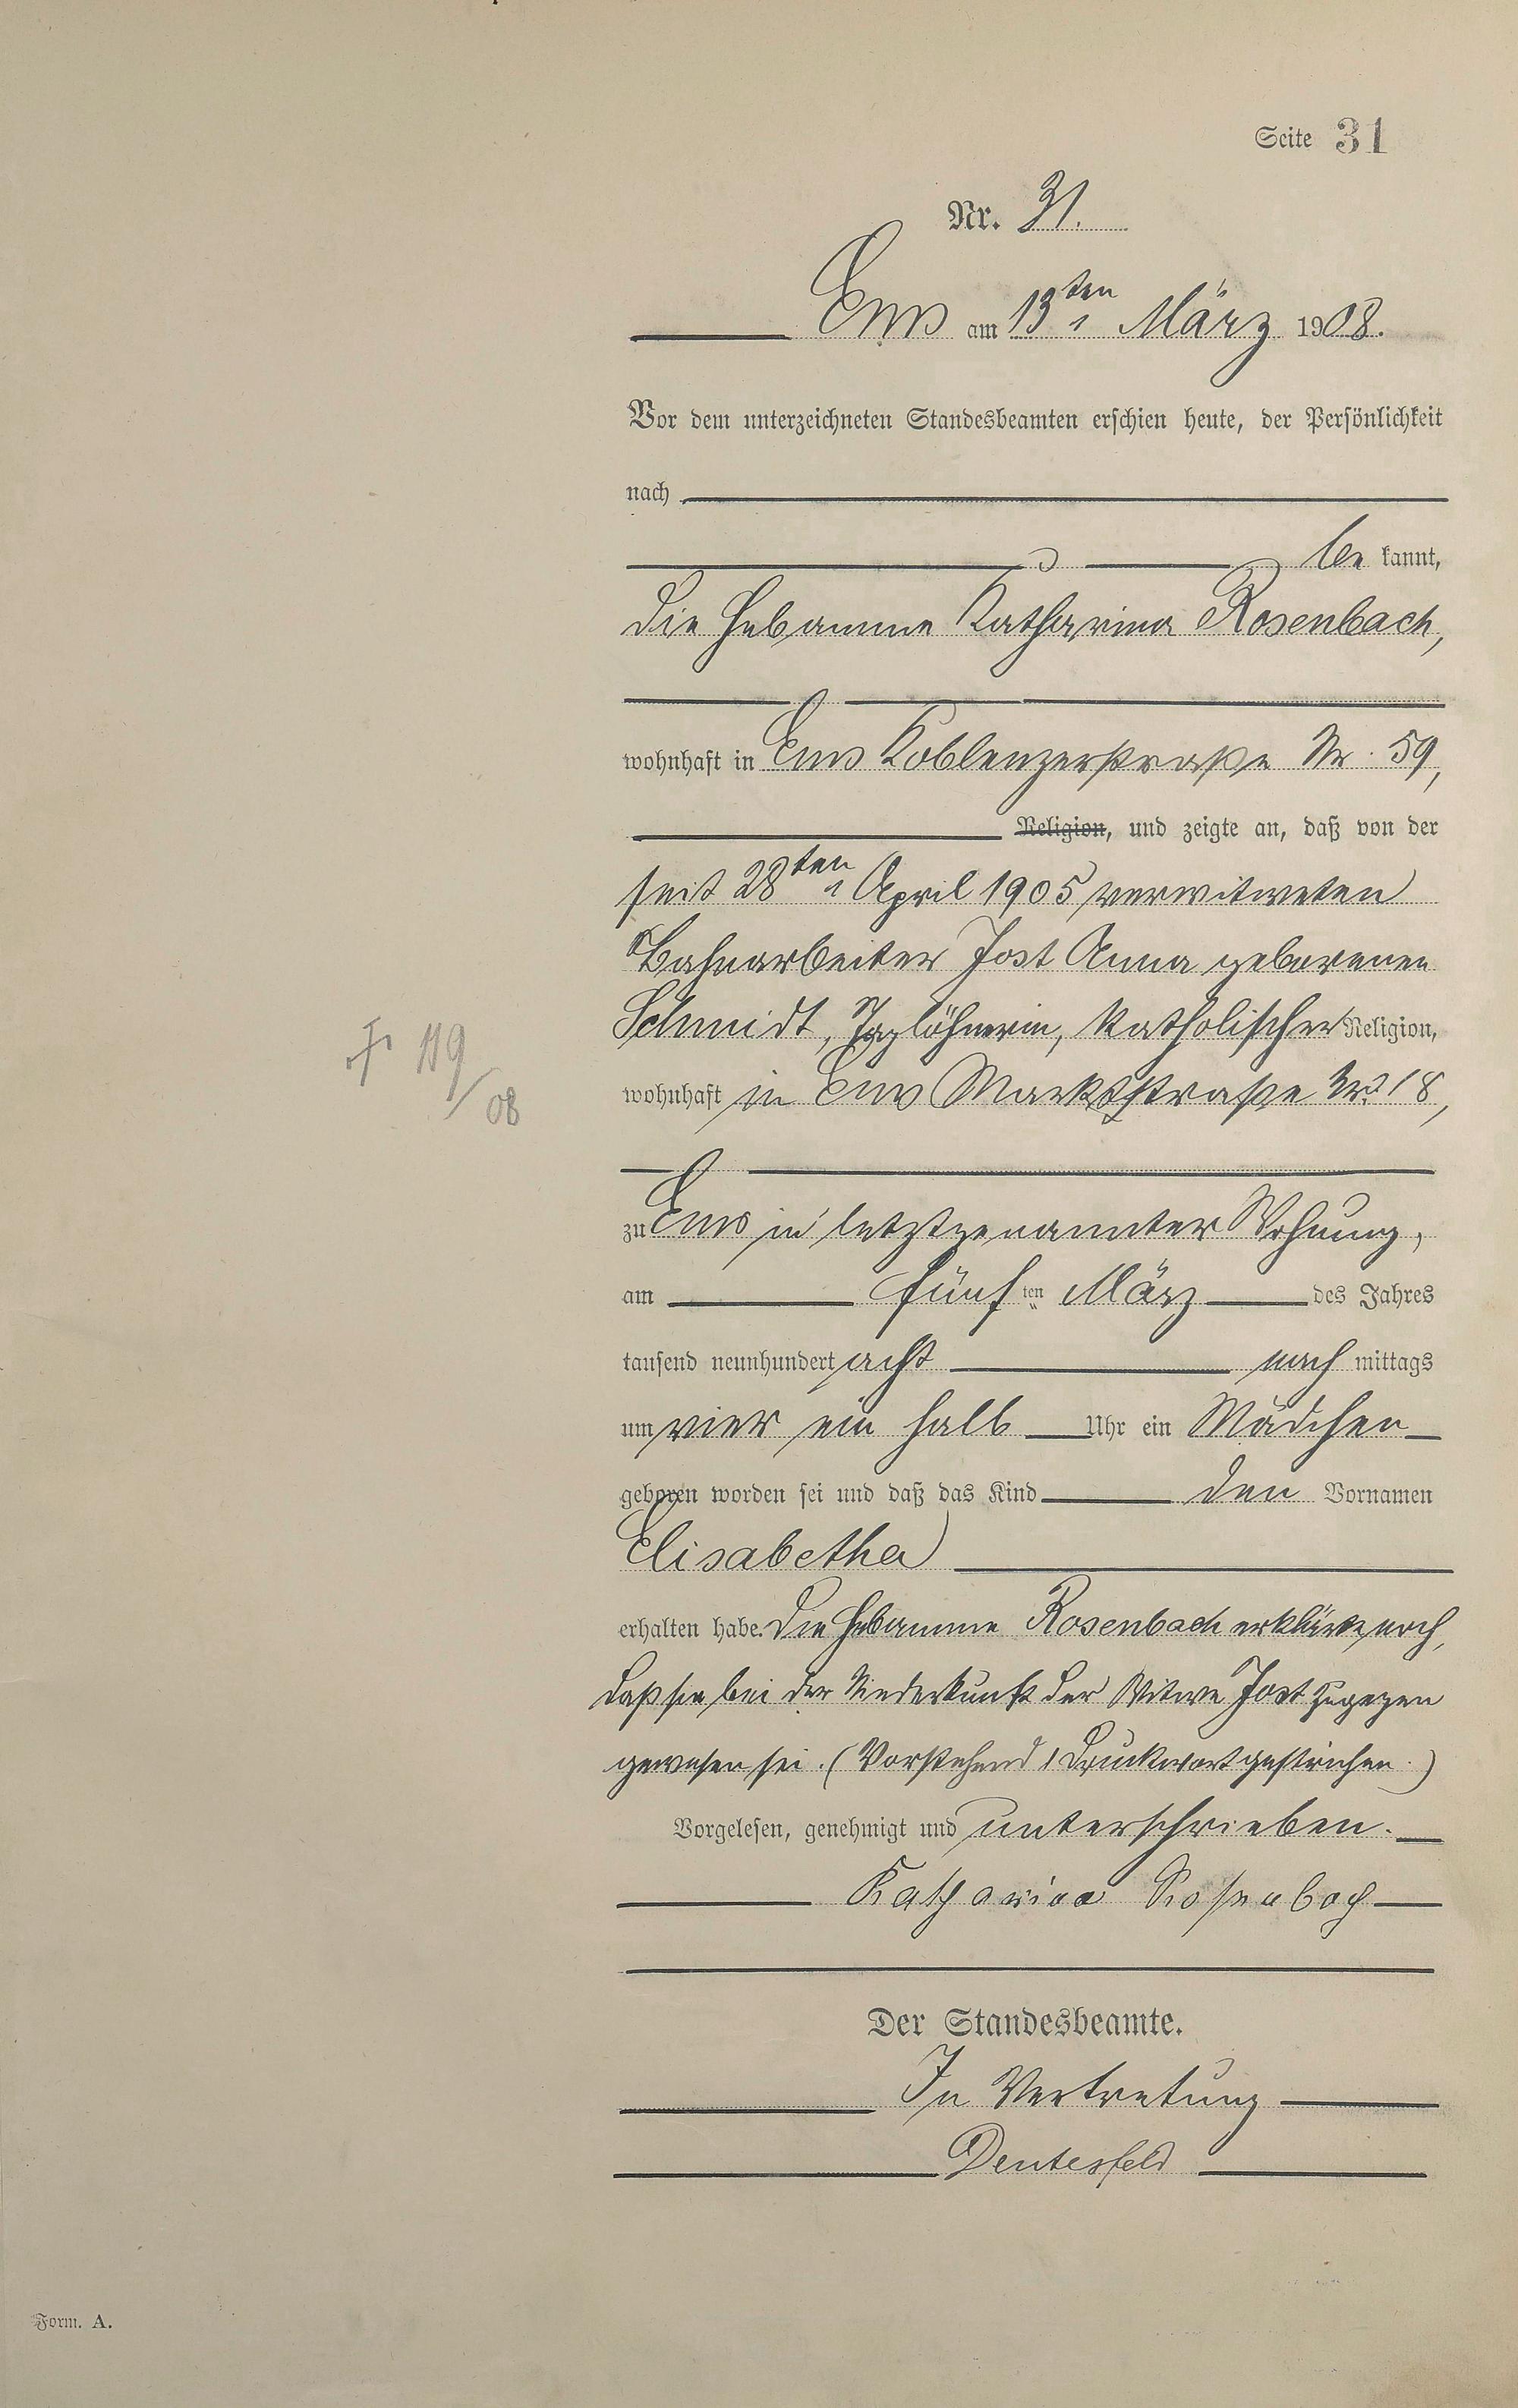 Seite 31
Nr. 31.
Ems am 13ten März 1908.
Vor dem unterzeichneten Standesbeamten erschien heute, der Persönlichkeit
nach
be kannt,
die Hebamme Katharina Rosenbach,
wohnhaft in Ems Koblenzerstraße Nr. 59,
Religion, und zeigte an, daß von der
seit 28ten April 1905 verwitweten
Bahnarbeiter Jost Anna geborenen
Schmidt, Taglöhnerin, katholischer Religion,
119/08
wohnhaft in Ems Marktstraße Nr. 18,
zu Ems in letztgenannter Wohnung,
am fünften März des Jahres
tausend neunhundert acht nach mittags
um vier ein halb Uhr ein Mädchen
geboren worden sei und daß das Kind den Vornamen
Elisabetha
erhalten habe. Die Hebamme Rosenbach erklärte noch,
daß sie bei der Niederkunft der Witwe Jost zugegen
gewesen sei. (Vorstehend 1 Druckwort gestrichen.)
Vorgelesen, genehmigt und unterschrieben.
Katharina Rosenbach
Der Standesbeamte.
In Vertretung
Form. A.